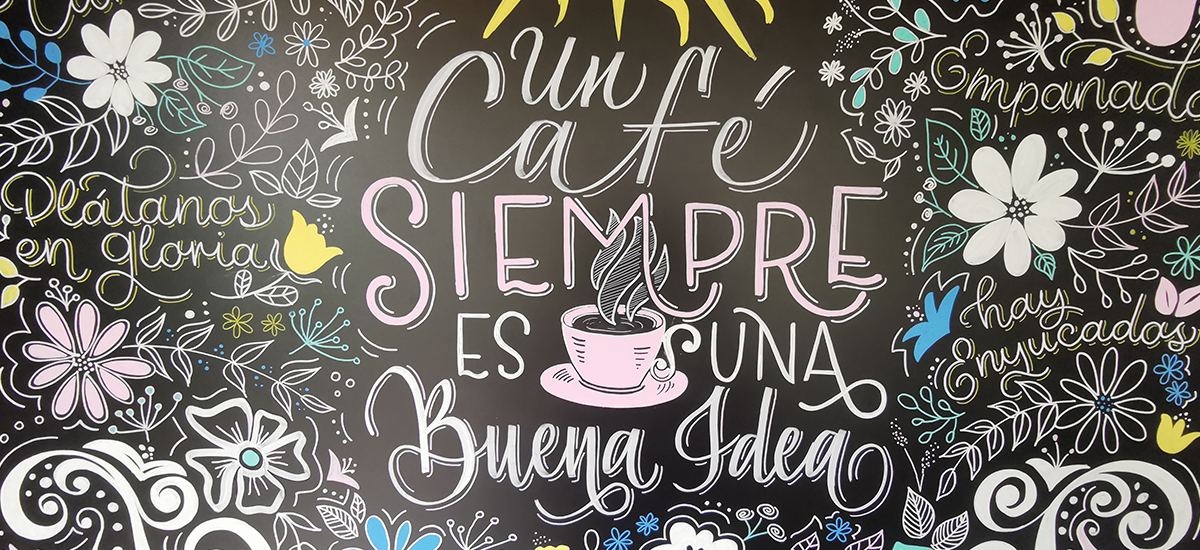 Un
Café
SIEMPRE
ES UNA
Buena Idea
Plátanos
en gloria
Empanada
hay
Enyucados